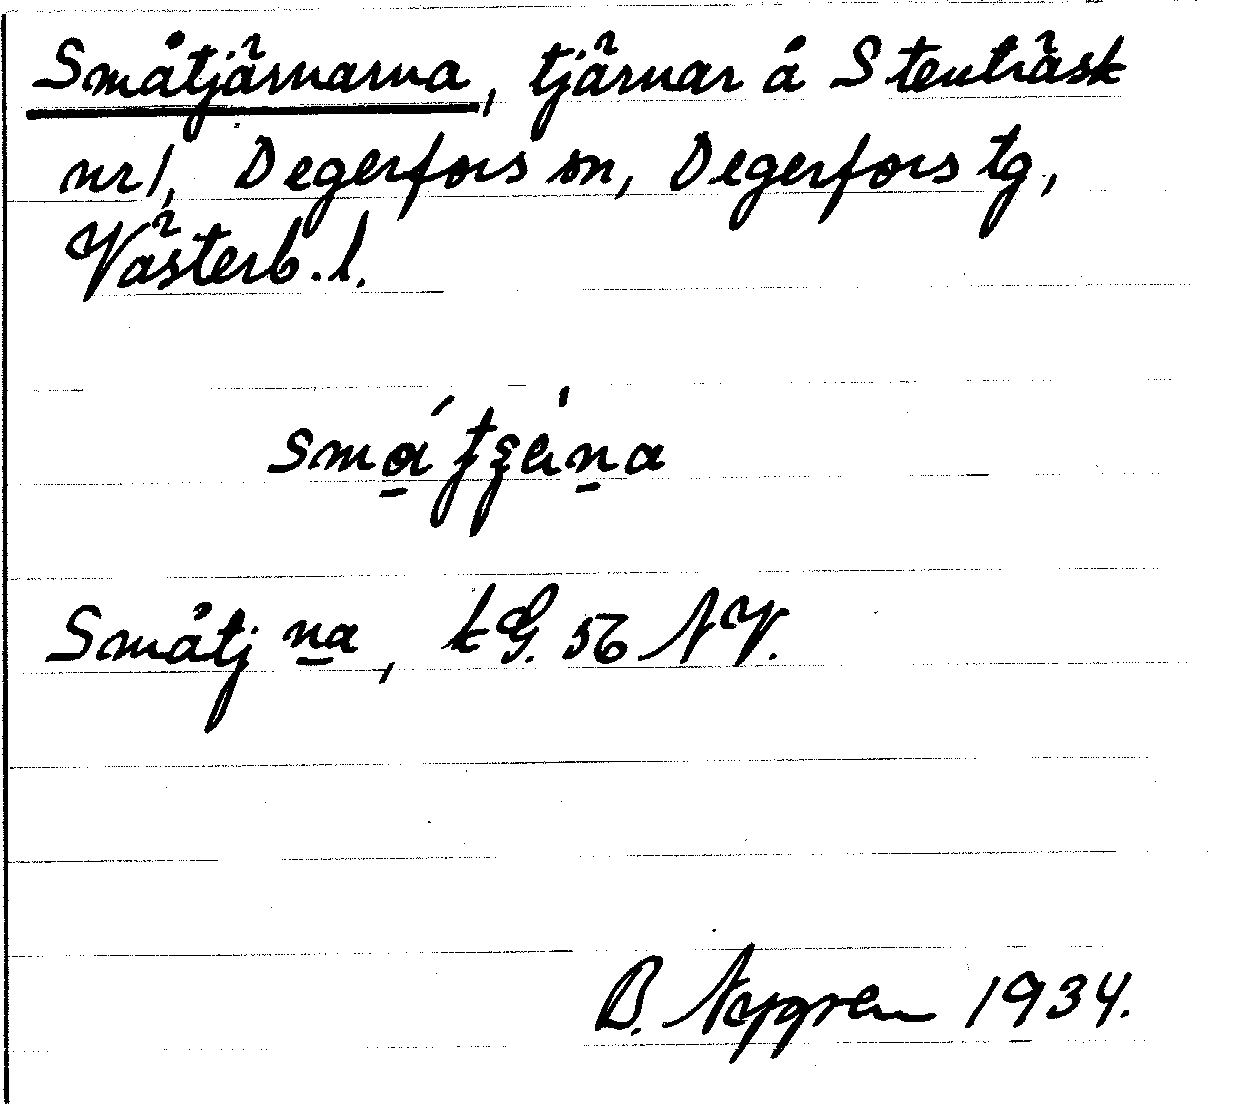 Småtjärnarna, tjärnar å Stenträsk
nr 1, Degerfors sn, Degerfors tg,
Västerb. l.
Småtj na, kG. 56 NV.
B. Nygren 1934.